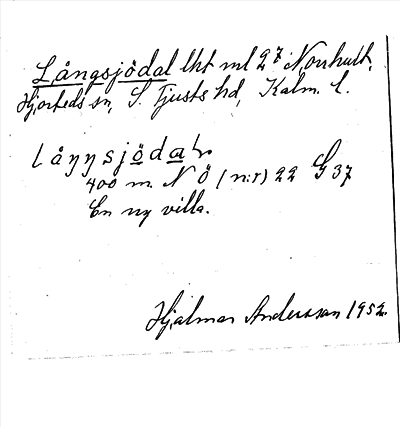 Långsjödal lht ml 2⁷ Norrhult,
Hjorteds sn, S. Tjusts hd, Kalm. l.
låŋŋsjödal
400 m. N Ö (n:r) 22 G 37
En ny villa.
Hjalmar Andersson 1952.